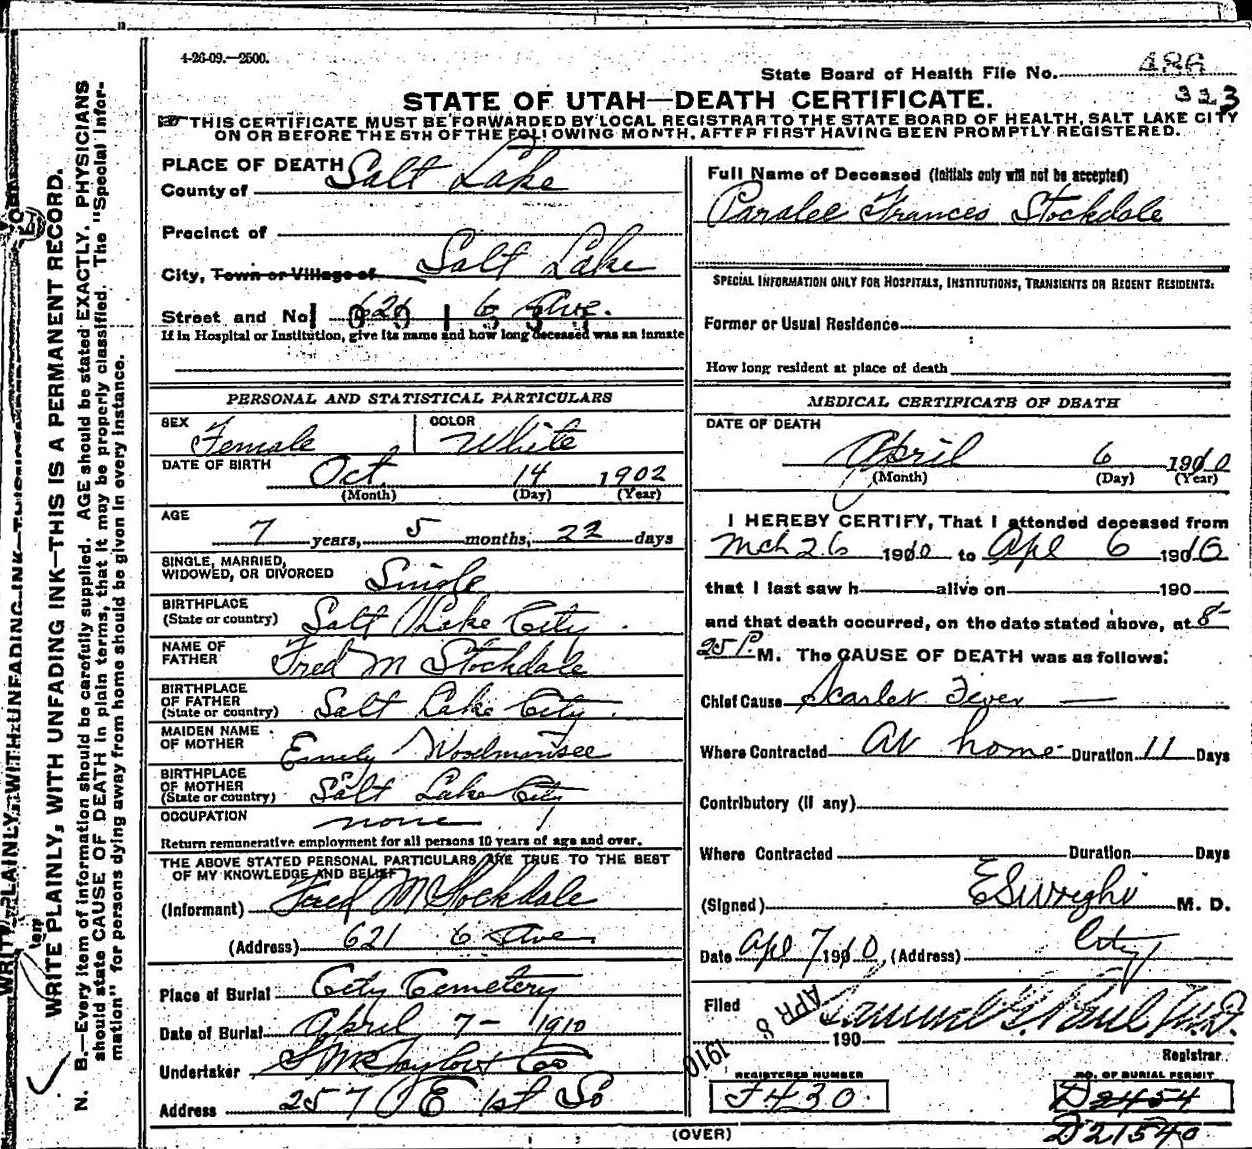 4-26-09.—2500.
State Board of Health File No. 486
323
STATE OF UTAH—DEATH CERTIFICATE.
THIS CERTIFICATE MUST BE FORWARDED BY LOCAL REGISTRAR TO THE STATE BOARD OF HEALTH, SALT LAKE CITY
ON OR BEFORE THE 5TH OF THE FOLLOWING MONTH, AFTER FIRST HAVING BEEN PROMPTLY REGISTERED.
PLACE OF DEATH
County of Salt Lake
Precinct of
City, Town or Village of Salt Lake
Street and No. 621 6 Ave.
If in Hospital or Institution, give its name and how long deceased was an inmate
PERSONAL AND STATISTICAL PARTICULARS
SEX Female COLOR White
DATE OF BIRTH Oct. 14 1902
(Month) (Day) (Year)
AGE
7 years, 5 months, 22 days
SINGLE, MARRIED,
WIDOWED, OR DIVORCED Single
BIRTHPLACE
(State or country) Salt Lake City.
NAME OF
FATHER Fred M Stockdale
BIRTHPLACE
OF FATHER
(State or country) Salt Lake City.
MAIDEN NAME
OF MOTHER Emily Woodmansee
BIRTHPLACE
OF MOTHER
(State or country) Salt Lake City
OCCUPATION none
Return remunerative employment for all persons 10 years of age and over.
THE ABOVE STATED PERSONAL PARTICULARS ARE TRUE TO THE BEST
OF MY KNOWLEDGE AND BELIEF
(Informant) Fred M Stockdale
(Address) 621 6 Ave
Place of Burial City Cemetery
Date of Burial April 7- 1910
Undertaker S M Taylor & Co
Address 257 E 1st So
Full Name of Deceased (Initials only will not be accepted)
Paralee Frances Stockdale
SPECIAL INFORMATION ONLY FOR HOSPITALS, INSTITUTIONS, TRANSIENTS OR RECENT RESIDENTS:
Former or Usual Residence
How long resident at place of death
MEDICAL CERTIFICATE OF DEATH
DATE OF DEATH
April 6 1910
(Month) (Day) (Year)
I HEREBY CERTIFY, That I attended deceased from
Mch 26 1910 to Apl 6 1910
that I last saw h alive on 190
and that death occurred, on the date stated above, at 8-
25 P. M. The CAUSE OF DEATH was as follows:
Chief Cause Scarlet Fever
Where Contracted At home Duration 11 Days
Contributory (if any)
Where Contracted Duration Days
(Signed) E S Wright M. D.
Date Apl 7 1910, (Address) City
Filed APR 8 1910 190 Samuel G. Paul M.D.
Registrar
REGISTERED NUMBER
F430.
NO. OF BURIAL PERMIT
D2454
D21540
(OVER)
WRITE PLAINLY, WITH UNFADING INK—THIS IS A PERMANENT RECORD.
N. B.—Every item of information should be carefully supplied. AGE should be stated EXACTLY. PHYSICIANS
should state CAUSE OF DEATH in plain terms, that it may be properly classified. The "Special Infor-
mation" for persons dying away from home should be given in every instance.